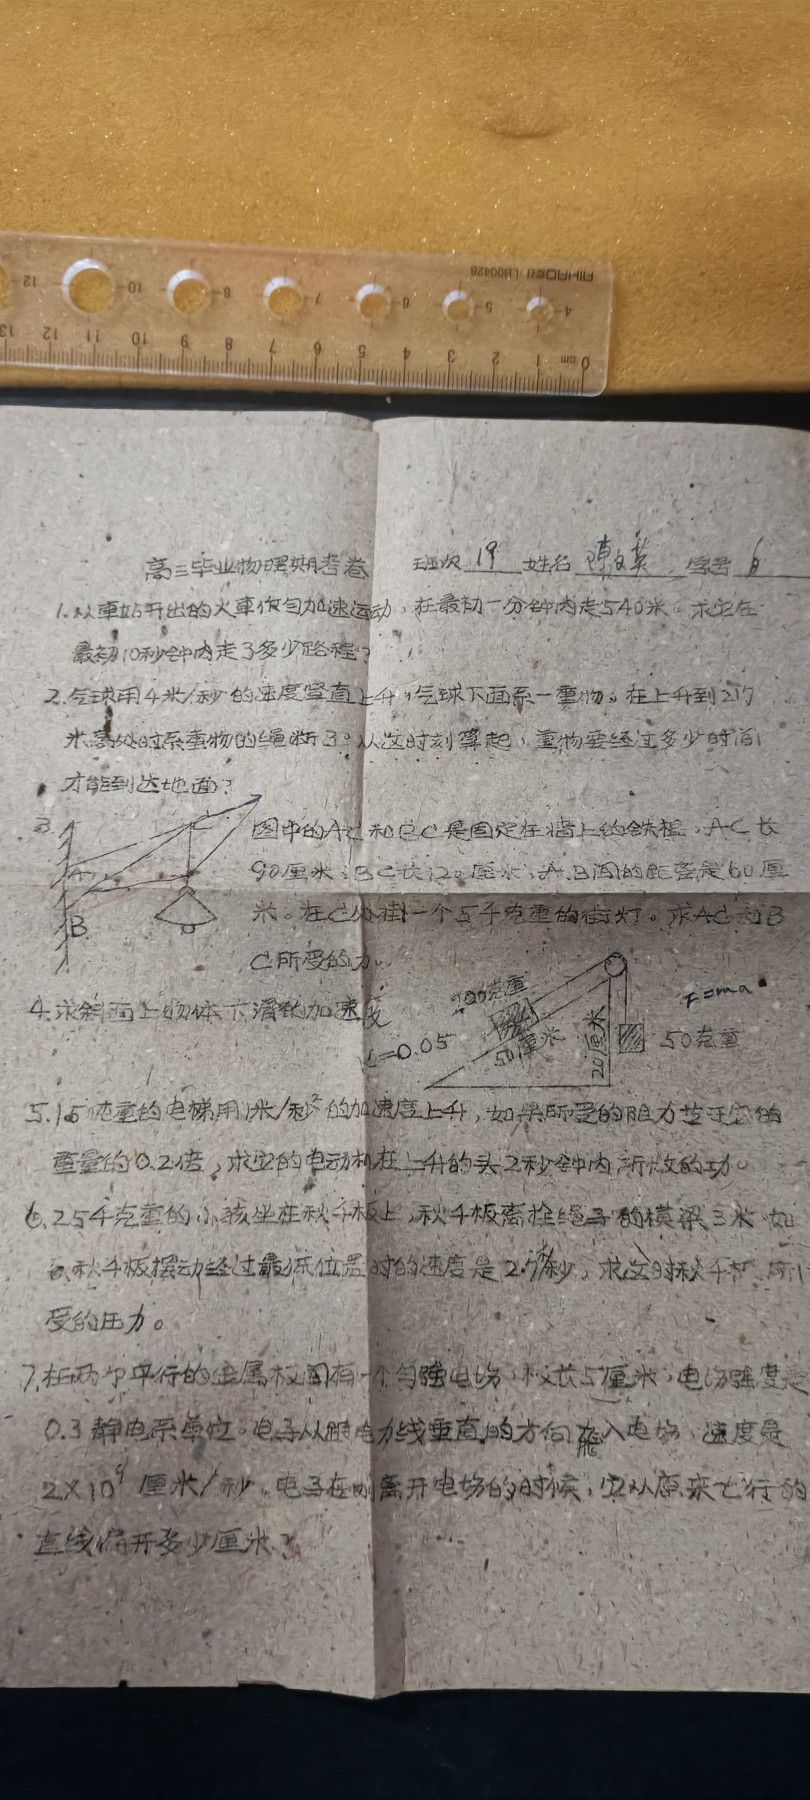 AIHAO LD00428
4 5 6 7 8 10 12
0 cm 1 2 3 4 5 6 7 8 9 10 11 12 13
高三毕业物理期考卷 班次 19 姓名 陳文英 学号 6
1.从車站开出的火車作匀加速运动，在最初一分钟内走540米。求它在
最初10秒钟内走了多少路程？
2.气球用4米/秒的速度竖直上升，气球下面系一重物。在上升到217
米高处时系重物的绳断了。从这时刻算起，重物要经过多少时间
才能到达地面？
3.
图中的AC和BC是固定在墙上的铁框，AC长
90厘米，BC长120厘米，A.B间的距离是60厘
米。在C处挂一个5千克重的街灯。求AC和B
C所受的力。
A
B
C
4.求斜面上物体下滑的加速度
200克重
50厘米
20厘米
50克重
F=ma
=0.05
5.1.5吨重的电梯用1米/秒²的加速度上升，如果所受的阻力等于它的
重量的0.2倍，求它的电动机在上升的头2秒钟内所做的功。
6.25千克重的小孩坐在秋千板上，秋千板离拴绳子的横梁3米，如
秋千板摆动经过最低位置时的速度是 秒，求这时秋千板所
受的压力。
7.在两个平行的金属板间有一个匀强电场，板长5厘米，电场强度是
0.3静电系单位。电子从跟电力线垂直的方向飛入电场，速度是
2×10⁹厘米/秒，电子在刚离开电场的时候，它从原来飞行的
直线偏开多少厘米？